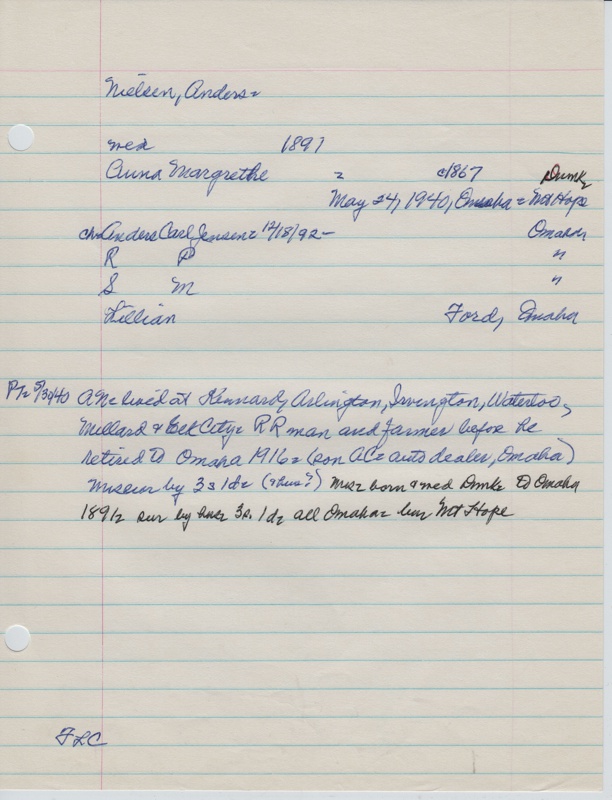 Nielsen, Anders =
med 1891
Anna Margrethe = c1867 Dumk
May 24, 1940, Omaha = Mt Hope
chn Anders Carl Jensen = 12/18/92 - Omaha
R P "
S M "
Lillian Ford, Omaha
P/= 5/30/40 AN= lived at Kennard, Arlington, Irvington, Waterloo,
Millard & Elk City = RR man and farmer before he
retired to Omaha 1916 = (son AC = auto dealer, Omaha)
Mrs sur by 3s 1d = (& hus?) Mrs = born & med Dmk = to Omaha
1891 = sur by hus = 3s. 1d = all Omaha = bur Mt Hope
FLC